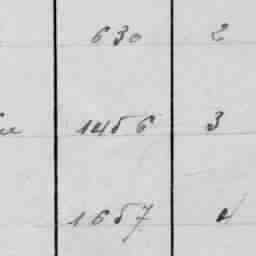 630 2
1456 3
1657 4